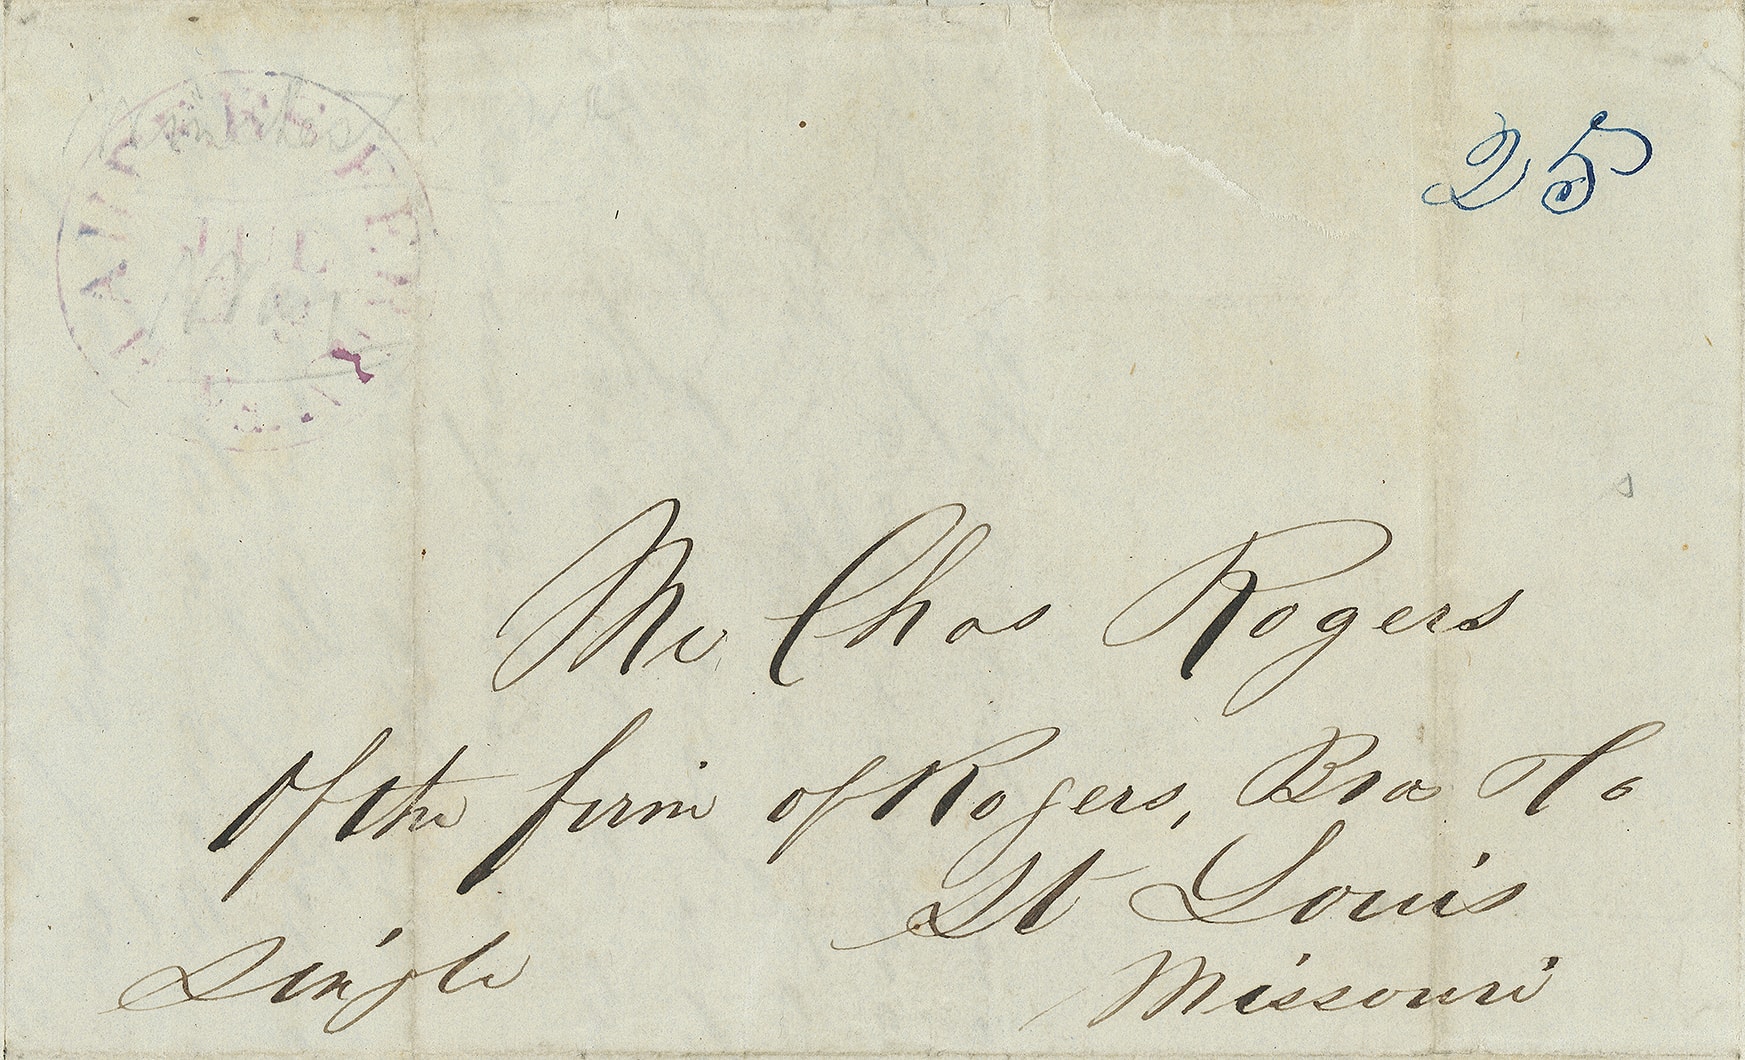 JUL
25
Mr Chas Rogers
Of the firm of Rogers, Bros & Co
St Louis
Missouri
Single